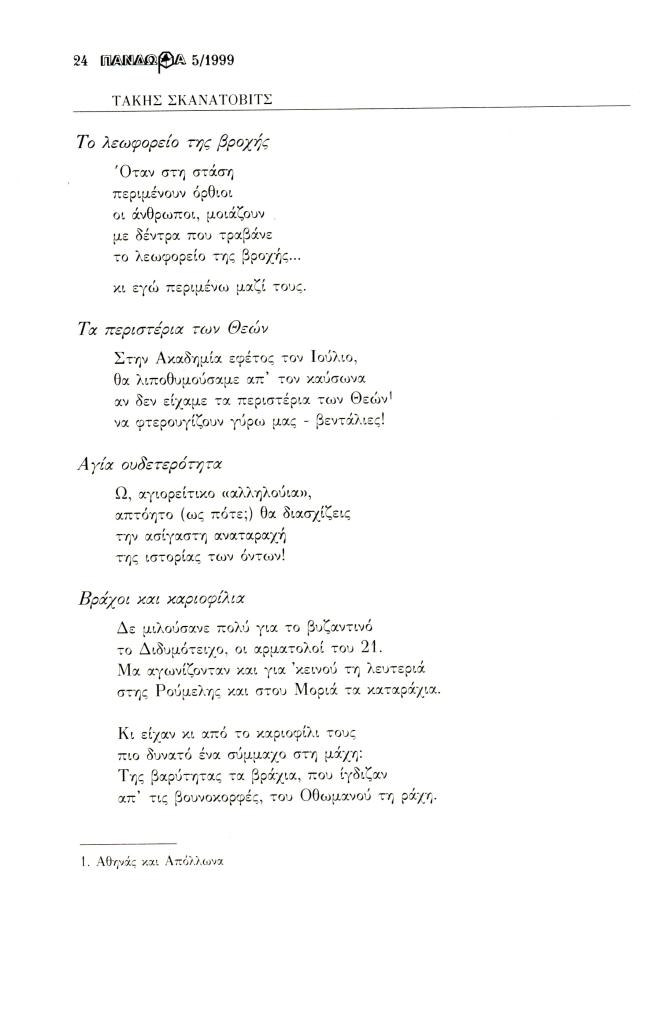 24 ΠΑΝΔΩΡΑ 5/1999
ΤΑΚΗΣ ΣΚΑΝΑΤΟΒΙΤΣ
Το λεωφορείο της βροχής
Όταν στη στάση
περιμένουν όρθιοι
οι άνθρωποι, μοιάζουν
με δέντρα που τραβάνε
το λεωφορείο της βροχής...
κι εγώ περιμένω μαζί τους.
Τα περιστέρια των Θεών
Στην Ακαδημία εφέτος τον Ιούλιο,
θα λιποθυμούσαμε απ' τον καύσωνα
αν δεν είχαμε τα περιστέρια των Θεών¹
να φτερουγίζουν γύρω μας - βεντάλιες!
Αγία ουδετερότητα
Ω, αγιορείτικο «αλληλούια»,
απτόητο (ως πότε;) θα διασχίζεις
την ασίγαστη αναταραχή
της ιστορίας των όντων!
Βράχοι και καριοφίλια
Δε μιλούσανε πολύ για το βυζαντινό
το Διδυμότειχο, οι αρματολοί του 21.
Μα αγωνίζονταν και για 'κεινού τη λευτεριά
στης Ρούμελης και στου Μοριά τα καταράχια.
Κι είχαν κι από το καριοφίλι τους
πιο δυνατό ένα σύμμαχο στη μάχη:
Της βαρύτητας τα βράχια, που ίγδιζαν
απ' τις βουνοκορφές, του Οθωμανού τη ράχη.
1. Αθηνάς και Απόλλωνα